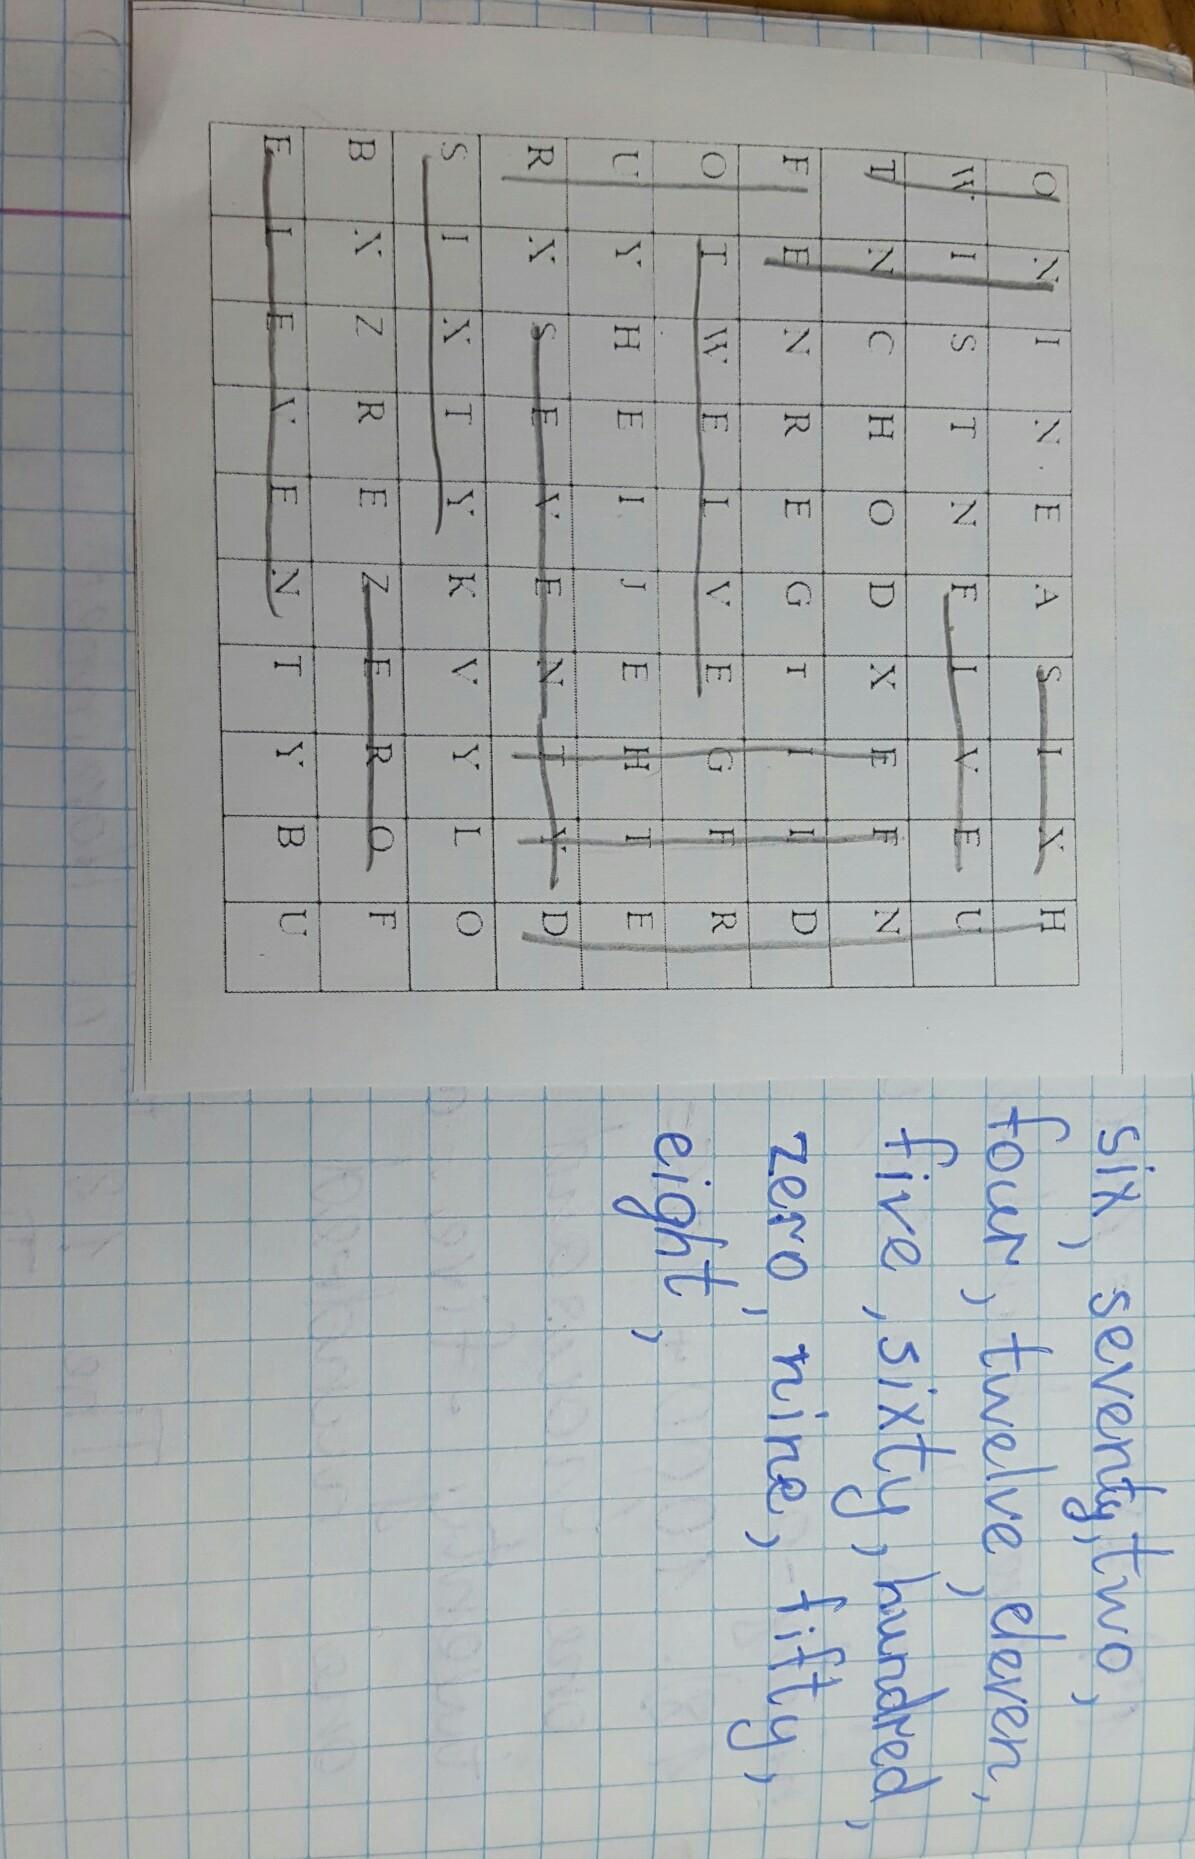 O N I N E A S I X H
W I S T N F I V E U
T N C H O D X E F N
F E N R E G I I I D
O T W E L V E G F R
U Y H E I J E H T E
R X S E V E N T Y D
S I X T Y K V Y L O
B X Z R E Z E R O F
E L E V E N T Y B U
six, seventy, two,
four, twelve, eleven,
five, sixty, hundred,
zero, nine, fifty,
eight,